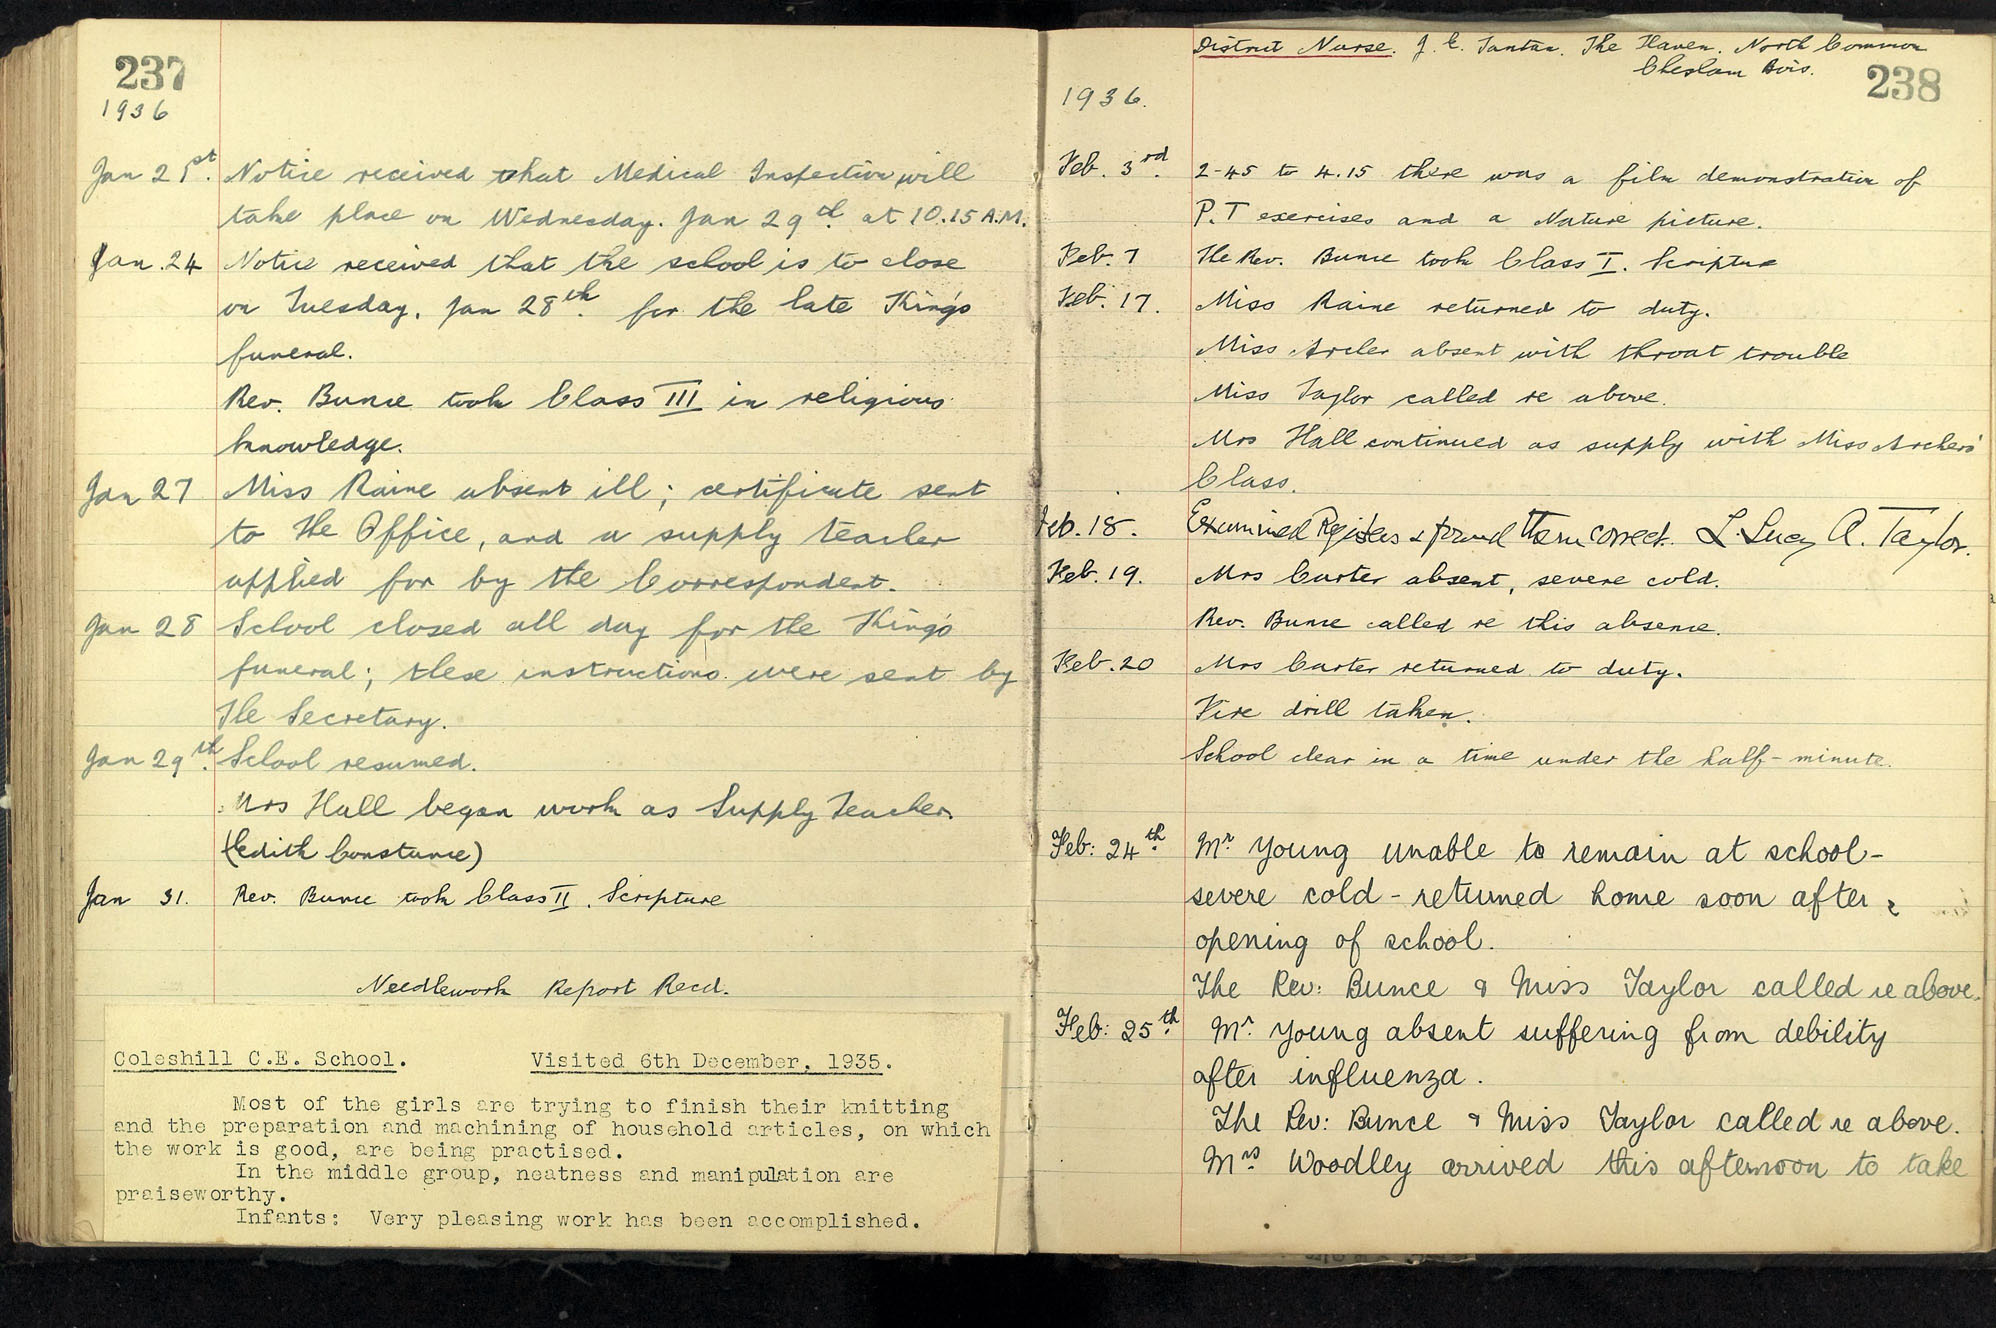 237
1936
Jan 21st. Notice received that Medical Inspection will
take place on Wednesday. Jan 29th. at 10.15 A.M.
Jan. 24 Notice received that the school is to close
on Tuesday, Jan 28th. for the late King's
funeral.
Rev. Bunce took Class III in religious
knowledge.
Jan 27 Miss Raine absent ill; certificate sent
to the Office, and a supply teacher
applied for by the Correspondent.
Jan 28 School closed all day for the King's
funeral; these instructions were sent by
the Secretary.
Jan 29th. School resumed.
Mrs Hall began work as Supply Teacher.
(Edith Constance)
Jan 31. Rev. Bunce took Class II. Scripture
Needlework Report Recd.
Coleshill C.E. School. Visited 6th December, 1935.
Most of the girls are trying to finish their knitting
and the preparation and machining of household articles, on which
the work is good, are being practised.
In the middle group, neatness and manipulation are
praiseworthy.
Infants: Very pleasing work has been accomplished.
District Nurse. J. E. The Haven. North Common
Chesham Bois.
238
1936.
Feb. 3rd. 2-45 to 4.15 there was a film demonstration of
P.T exercises and a Nature picture.
Feb. 7 The Rev. Bunce took Class I. Scripture
Feb. 17. Miss Raine returned to duty.
Miss Archer absent with throat trouble
Miss Taylor called re above.
Mrs Hall continued as supply with Miss Archers'
Class.
Feb. 18. Examined Registers & found them correct. L. Lucy A. Taylor.
Feb. 19. Mrs Carter absent, severe cold.
Rev. Bunce called re this absence.
Feb. 20 Mrs Carter returned to duty.
Fire drill taken.
School clear in a time under the half-minute.
Feb: 24th. Mr. Young unable to remain at school -
severe cold - returned home soon after
opening of school.
The Rev: Bunce & Miss Taylor called re above.
Feb: 25th. Mr. Young absent suffering from debility
after influenza.
The Rev: Bunce & Miss Taylor called re above.
Mrs. Woodley arrived this afternoon to take